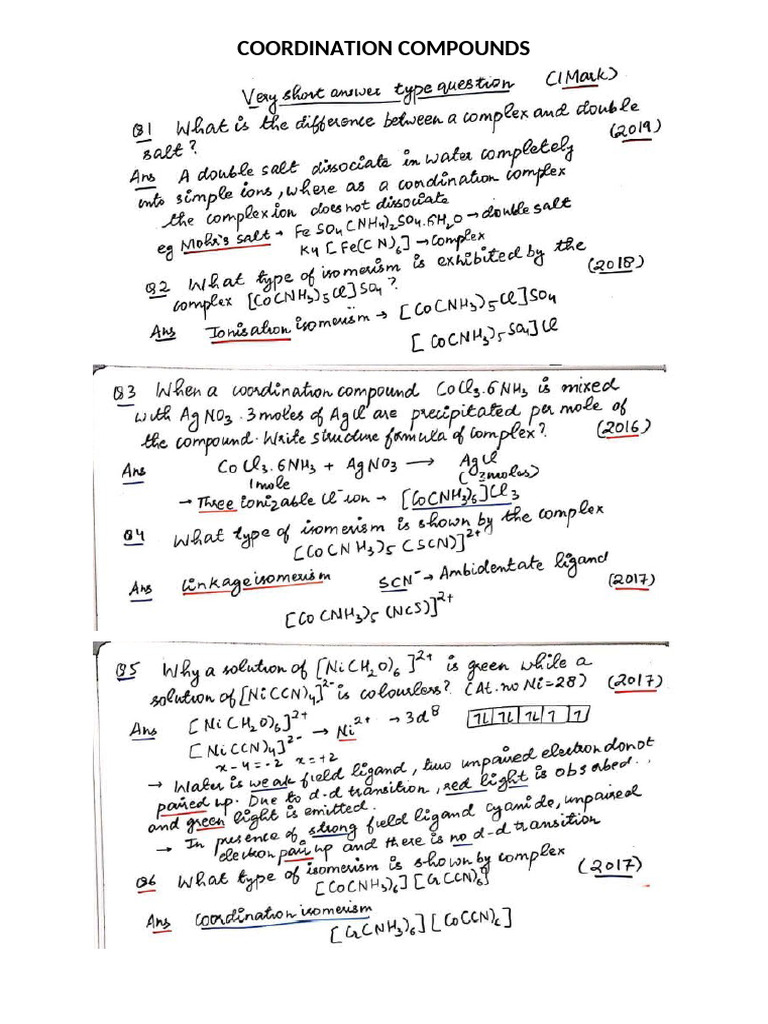 COORDINATION COMPOUNDS
Very short answer type question (1 Mark)
Q1 What is the difference between a complex and double
salt? (2019)
Ans A double salt dissociate in water completely
into simple ions, where as a coordination complex
the complex ion does not dissociate
eg Mohr's salt → FeSO4(NH4)2SO4.6H2O → double salt
K4[Fe(CN)6] → complex
Q2 What type of isomerism is exhibited by the
complex [Co(NH3)5Cl]SO4? (2018)
Ans Ionisation isomerism → [Co(NH3)5Cl]SO4
[Co(NH3)5SO4]Cl
Q3 When a coordination compound CoCl3.6NH3 is mixed
with AgNO3. 3 moles of AgCl are precipitated per mole of
the compound. Write structure formula of complex? (2016)
Ans CoCl3.6NH3 + AgNO3 → AgCl
1mole (3moles)
→ Three ionizable Cl- ion → [Co(NH3)6]Cl3
Q4 What type of isomerism is shown by the complex
[Co(NH3)5(SCN)]2+
Ans Linkage isomerism SCN- → Ambidentate ligand
(2017)
[Co(NH3)5(NCS)]2+
Q5 Why a solution of [Ni(H2O)6]2+ is green while a
solution of [Ni(CN)4]2- is colourless? (At. no Ni=28) (2017)
Ans [Ni(H2O)6]2+ → Ni2+ → 3d8 1L 1L 1L 1 1
[Ni(CN)4]2-
x-4=-2 x=+2
→ Water is weak field ligand, two unpaired electron donot
paired up. Due to d-d transition, red light is obsorbed..
and green light is emitted.
→ In presence of strong field ligand cyanide, unpaired
electron pair up and there is no d-d transition
Q6 What type of isomerism is shown by complex
[Co(NH3)6][Cr(CN)6] (2017)
Ans Coordination isomerism
[Cr(NH3)6][Co(CN)6]